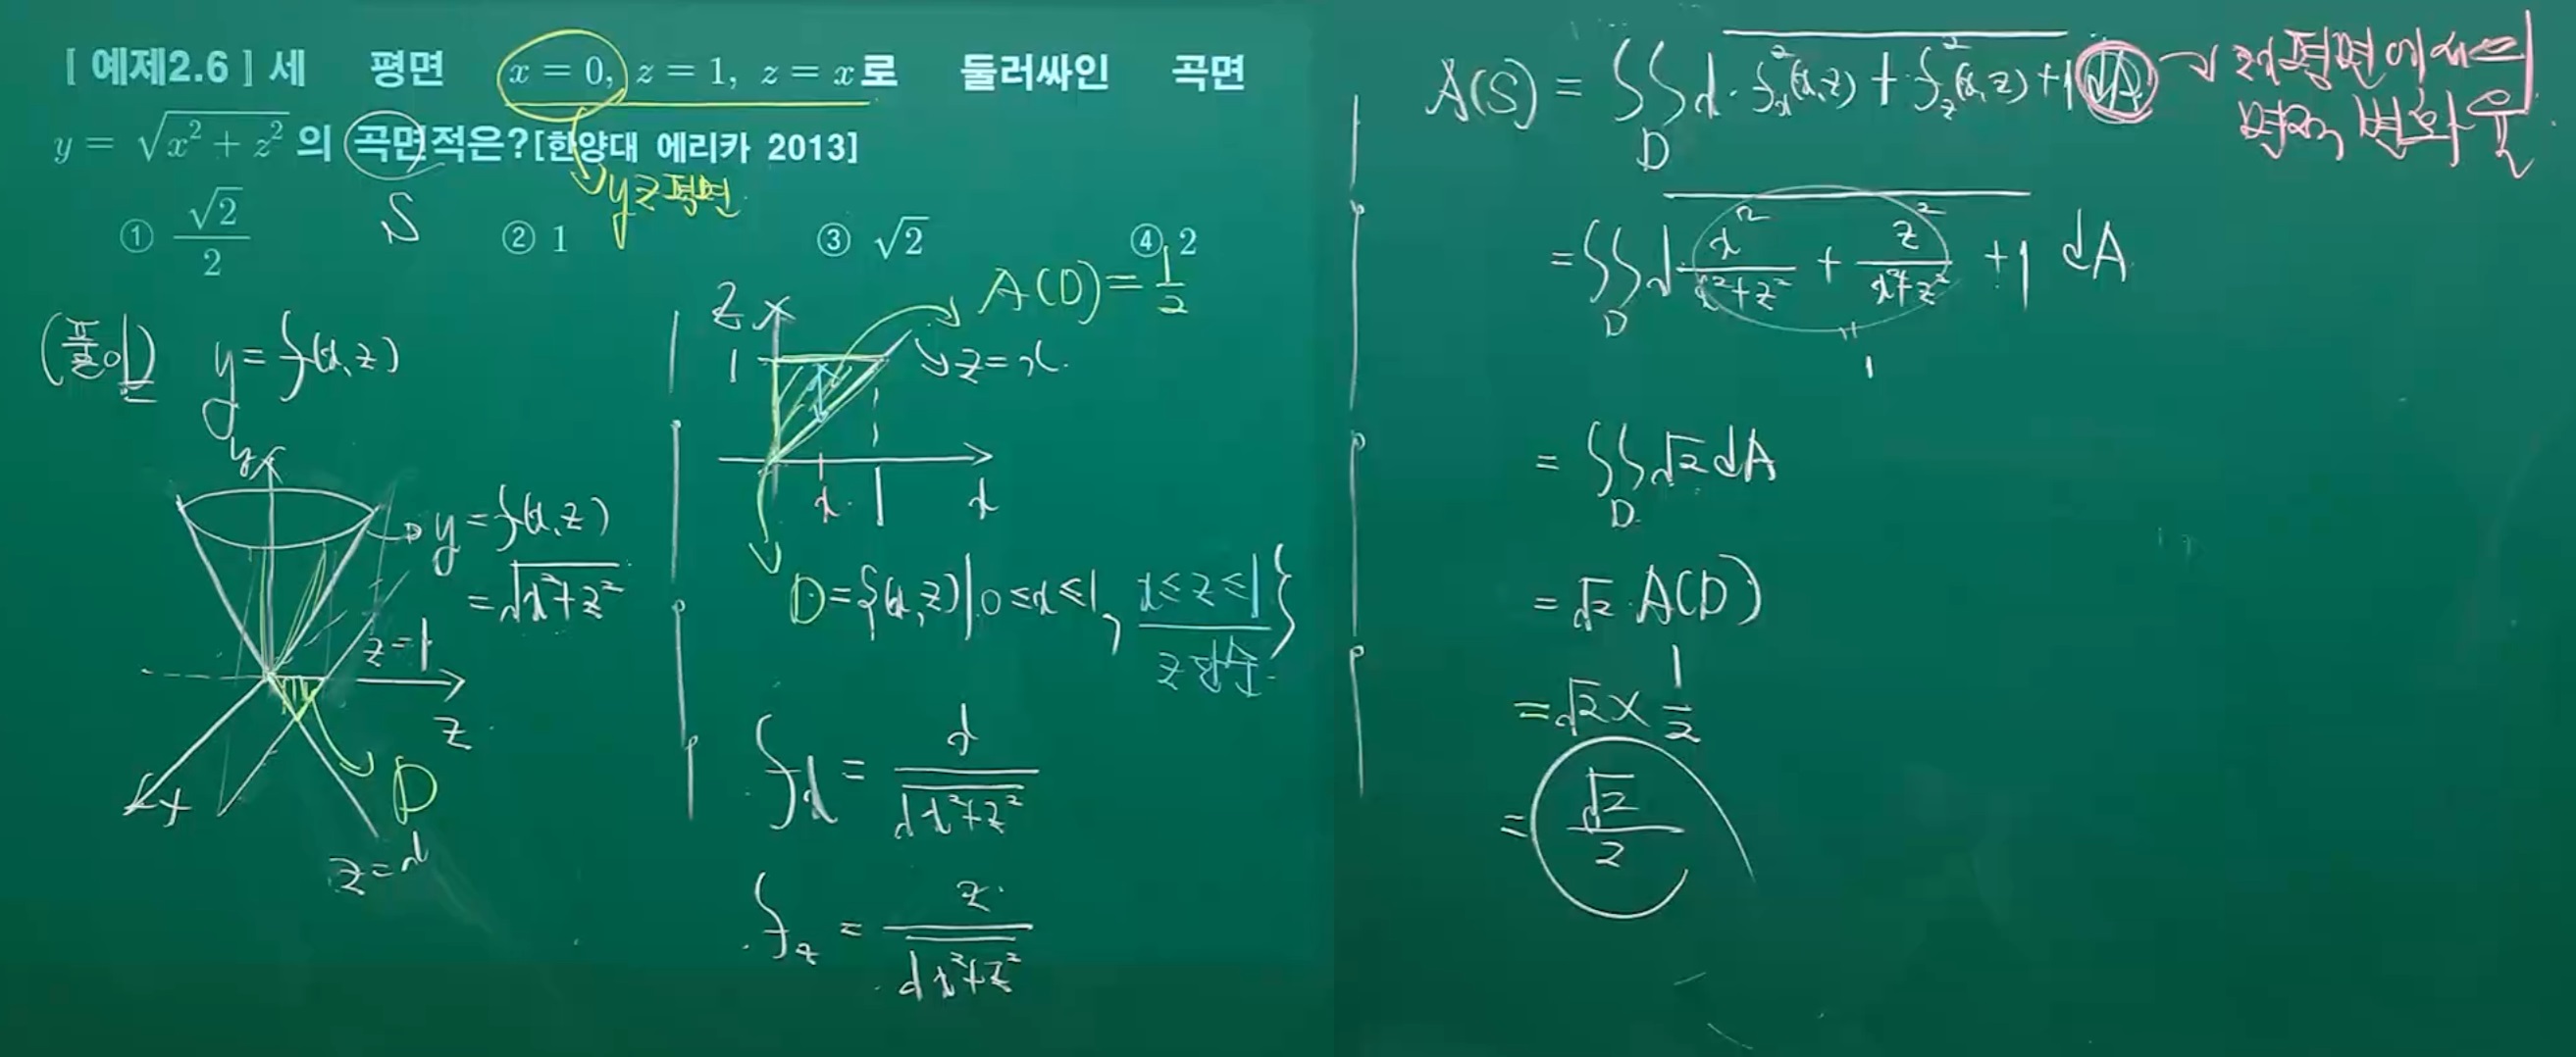 [ 예제2.6 ] 세 평면 x = 0, z = 1, z = x로 둘러싸인 곡면
y = √(x² + z²) 의 곡면적은?[한양대 에리카 2013]
yz평면
S
① √2/2 ② 1 ③ √2 ④ 2
(풀이) y = f(x,z)
y
y = f(x,z)
= √(x²+z²)
z=1
z
x
D
z=x
z
A(D) = 1/2
1
z=x.
x 1 x
D = {(x,z) | 0≤x≤1, x≤z≤1}
z함수.
f_x = x/√(x²+z²)
f_z = z/√(x²+z²)
A(S) = ∬_D √(f_x²(x,z) + f_z²(x,z) + 1) dA → zx평면에서의
면적 변화율
= ∬_D √(x²/(x²+z²) + z²/(x²+z²) + 1) dA
"
1
= ∬_D √2 dA
= √2 A(D)
= √2 × 1/2
= √2/2